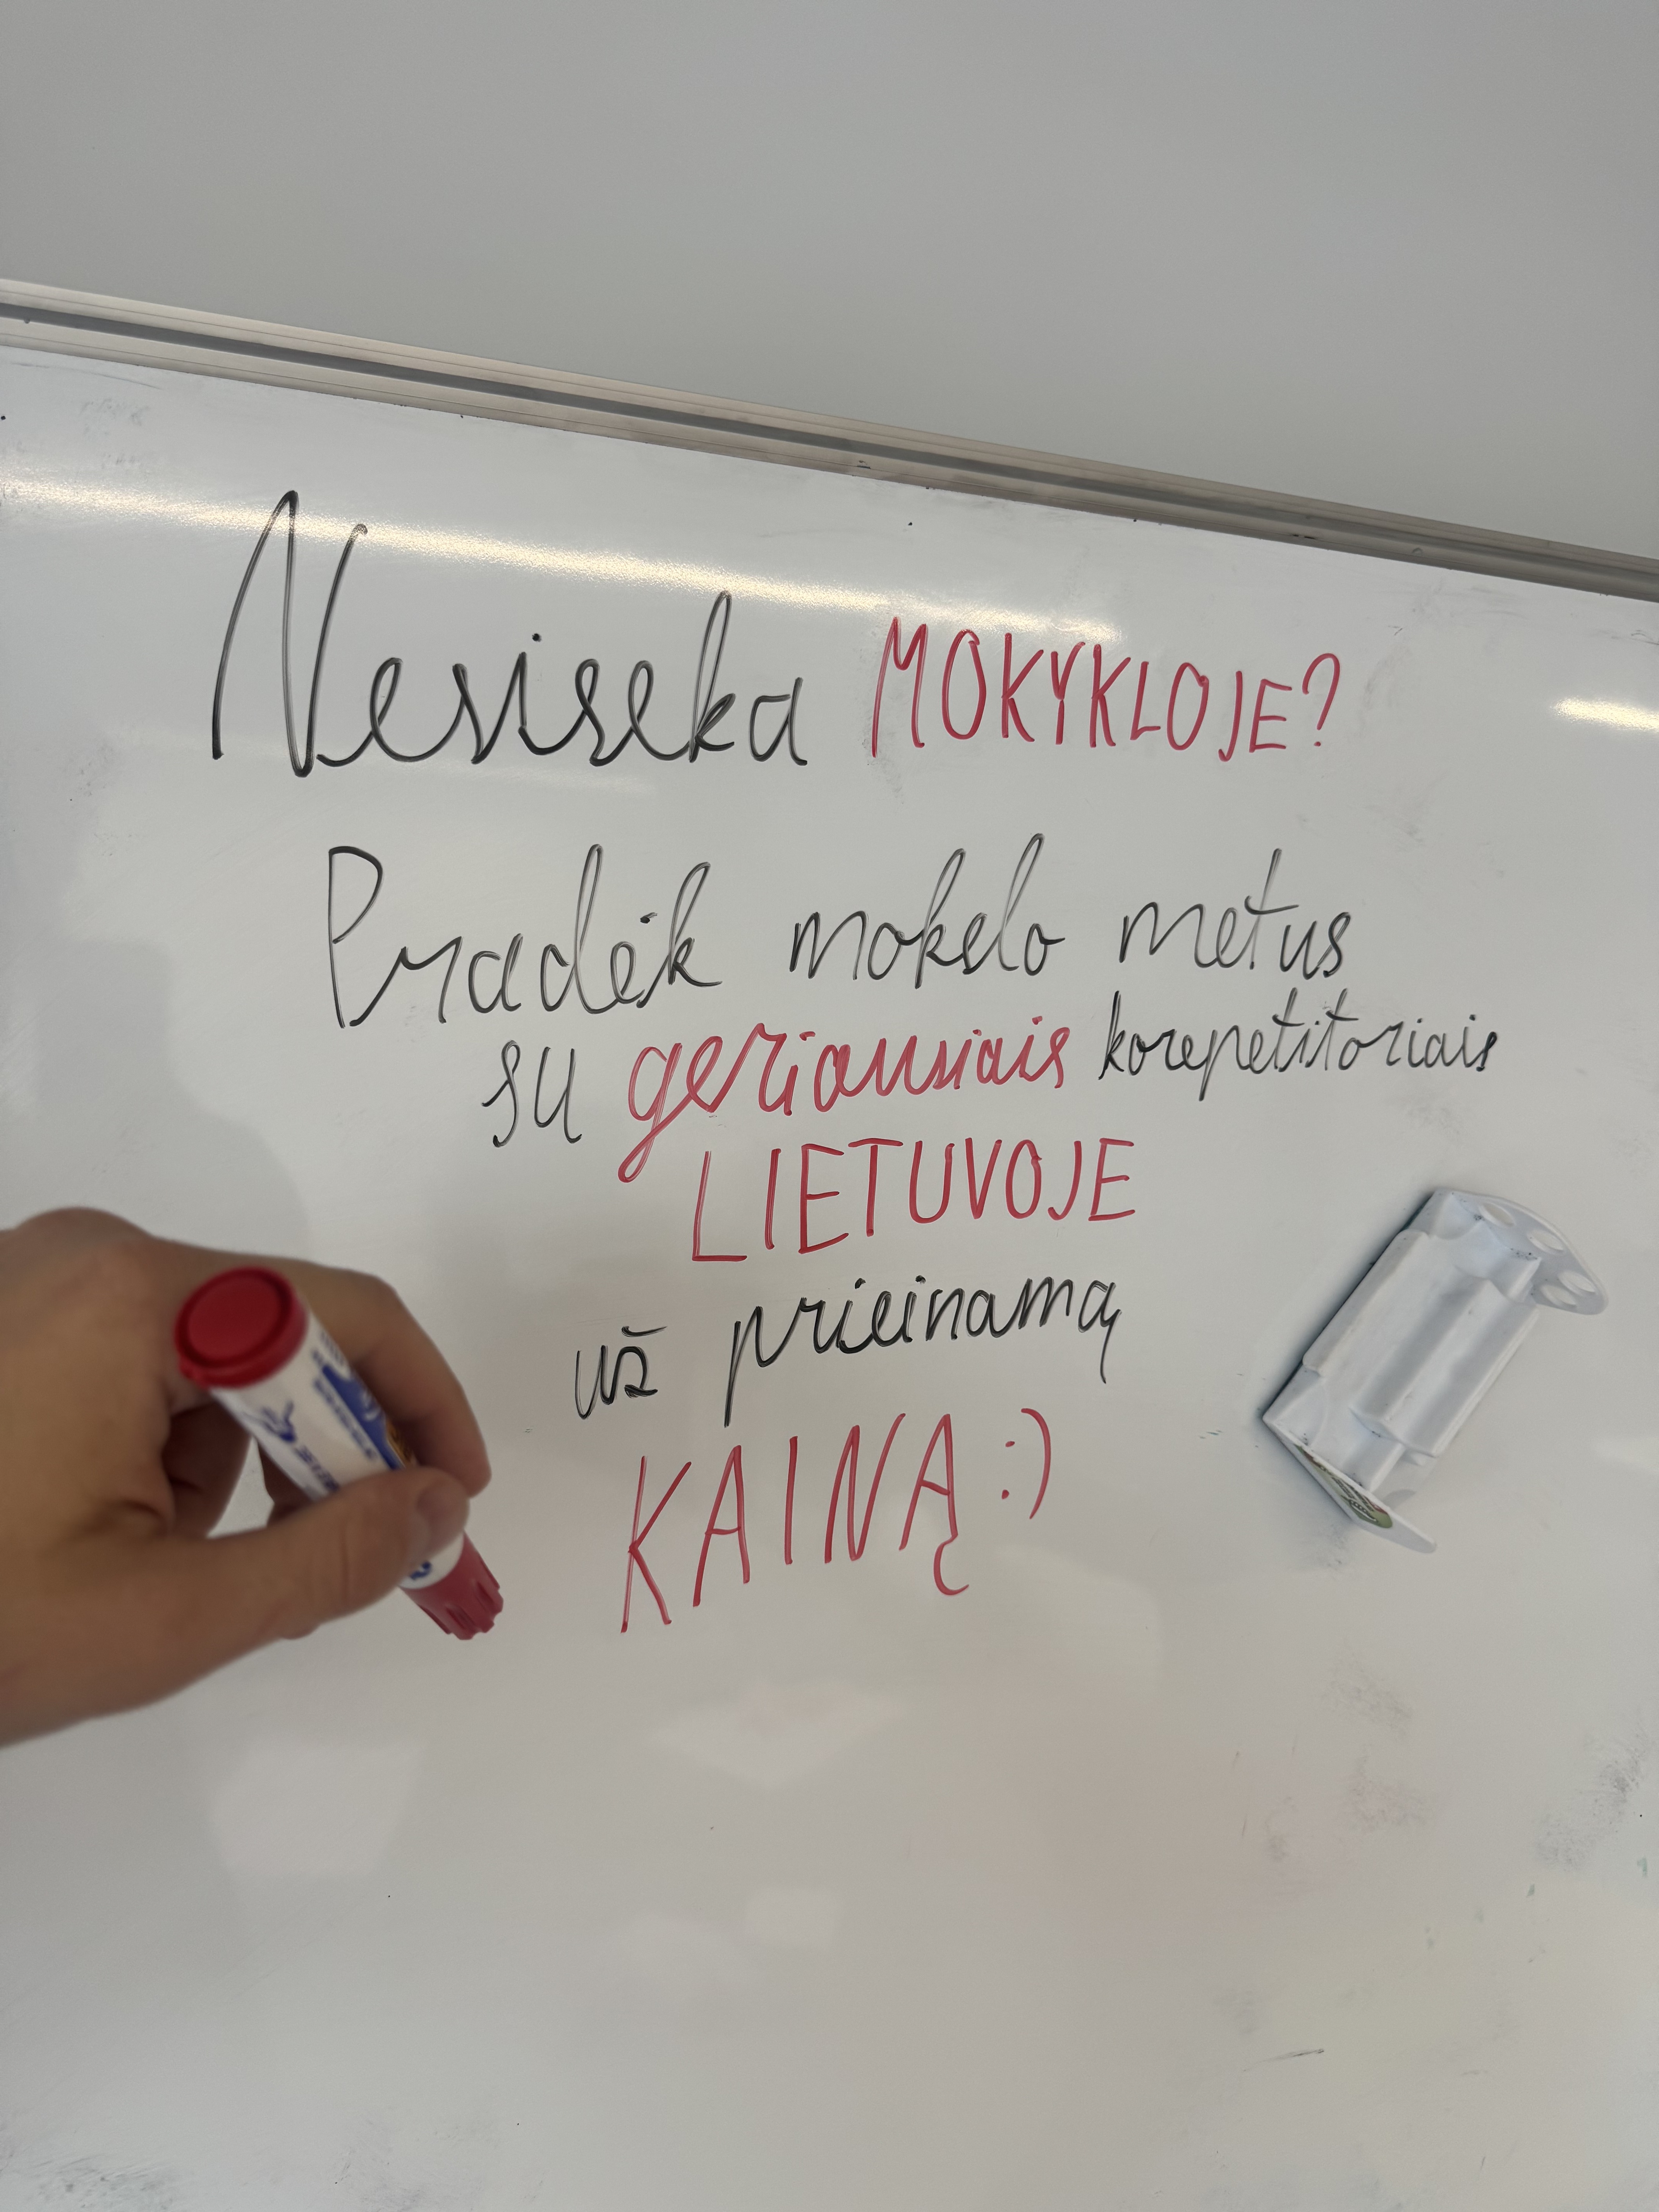 Nesiseka MOKYKLOJE?
Pradėk mokslo metus
su geriausiais korepetitoriais
LIETUVOJE
už prieinamą
KAINĄ :)